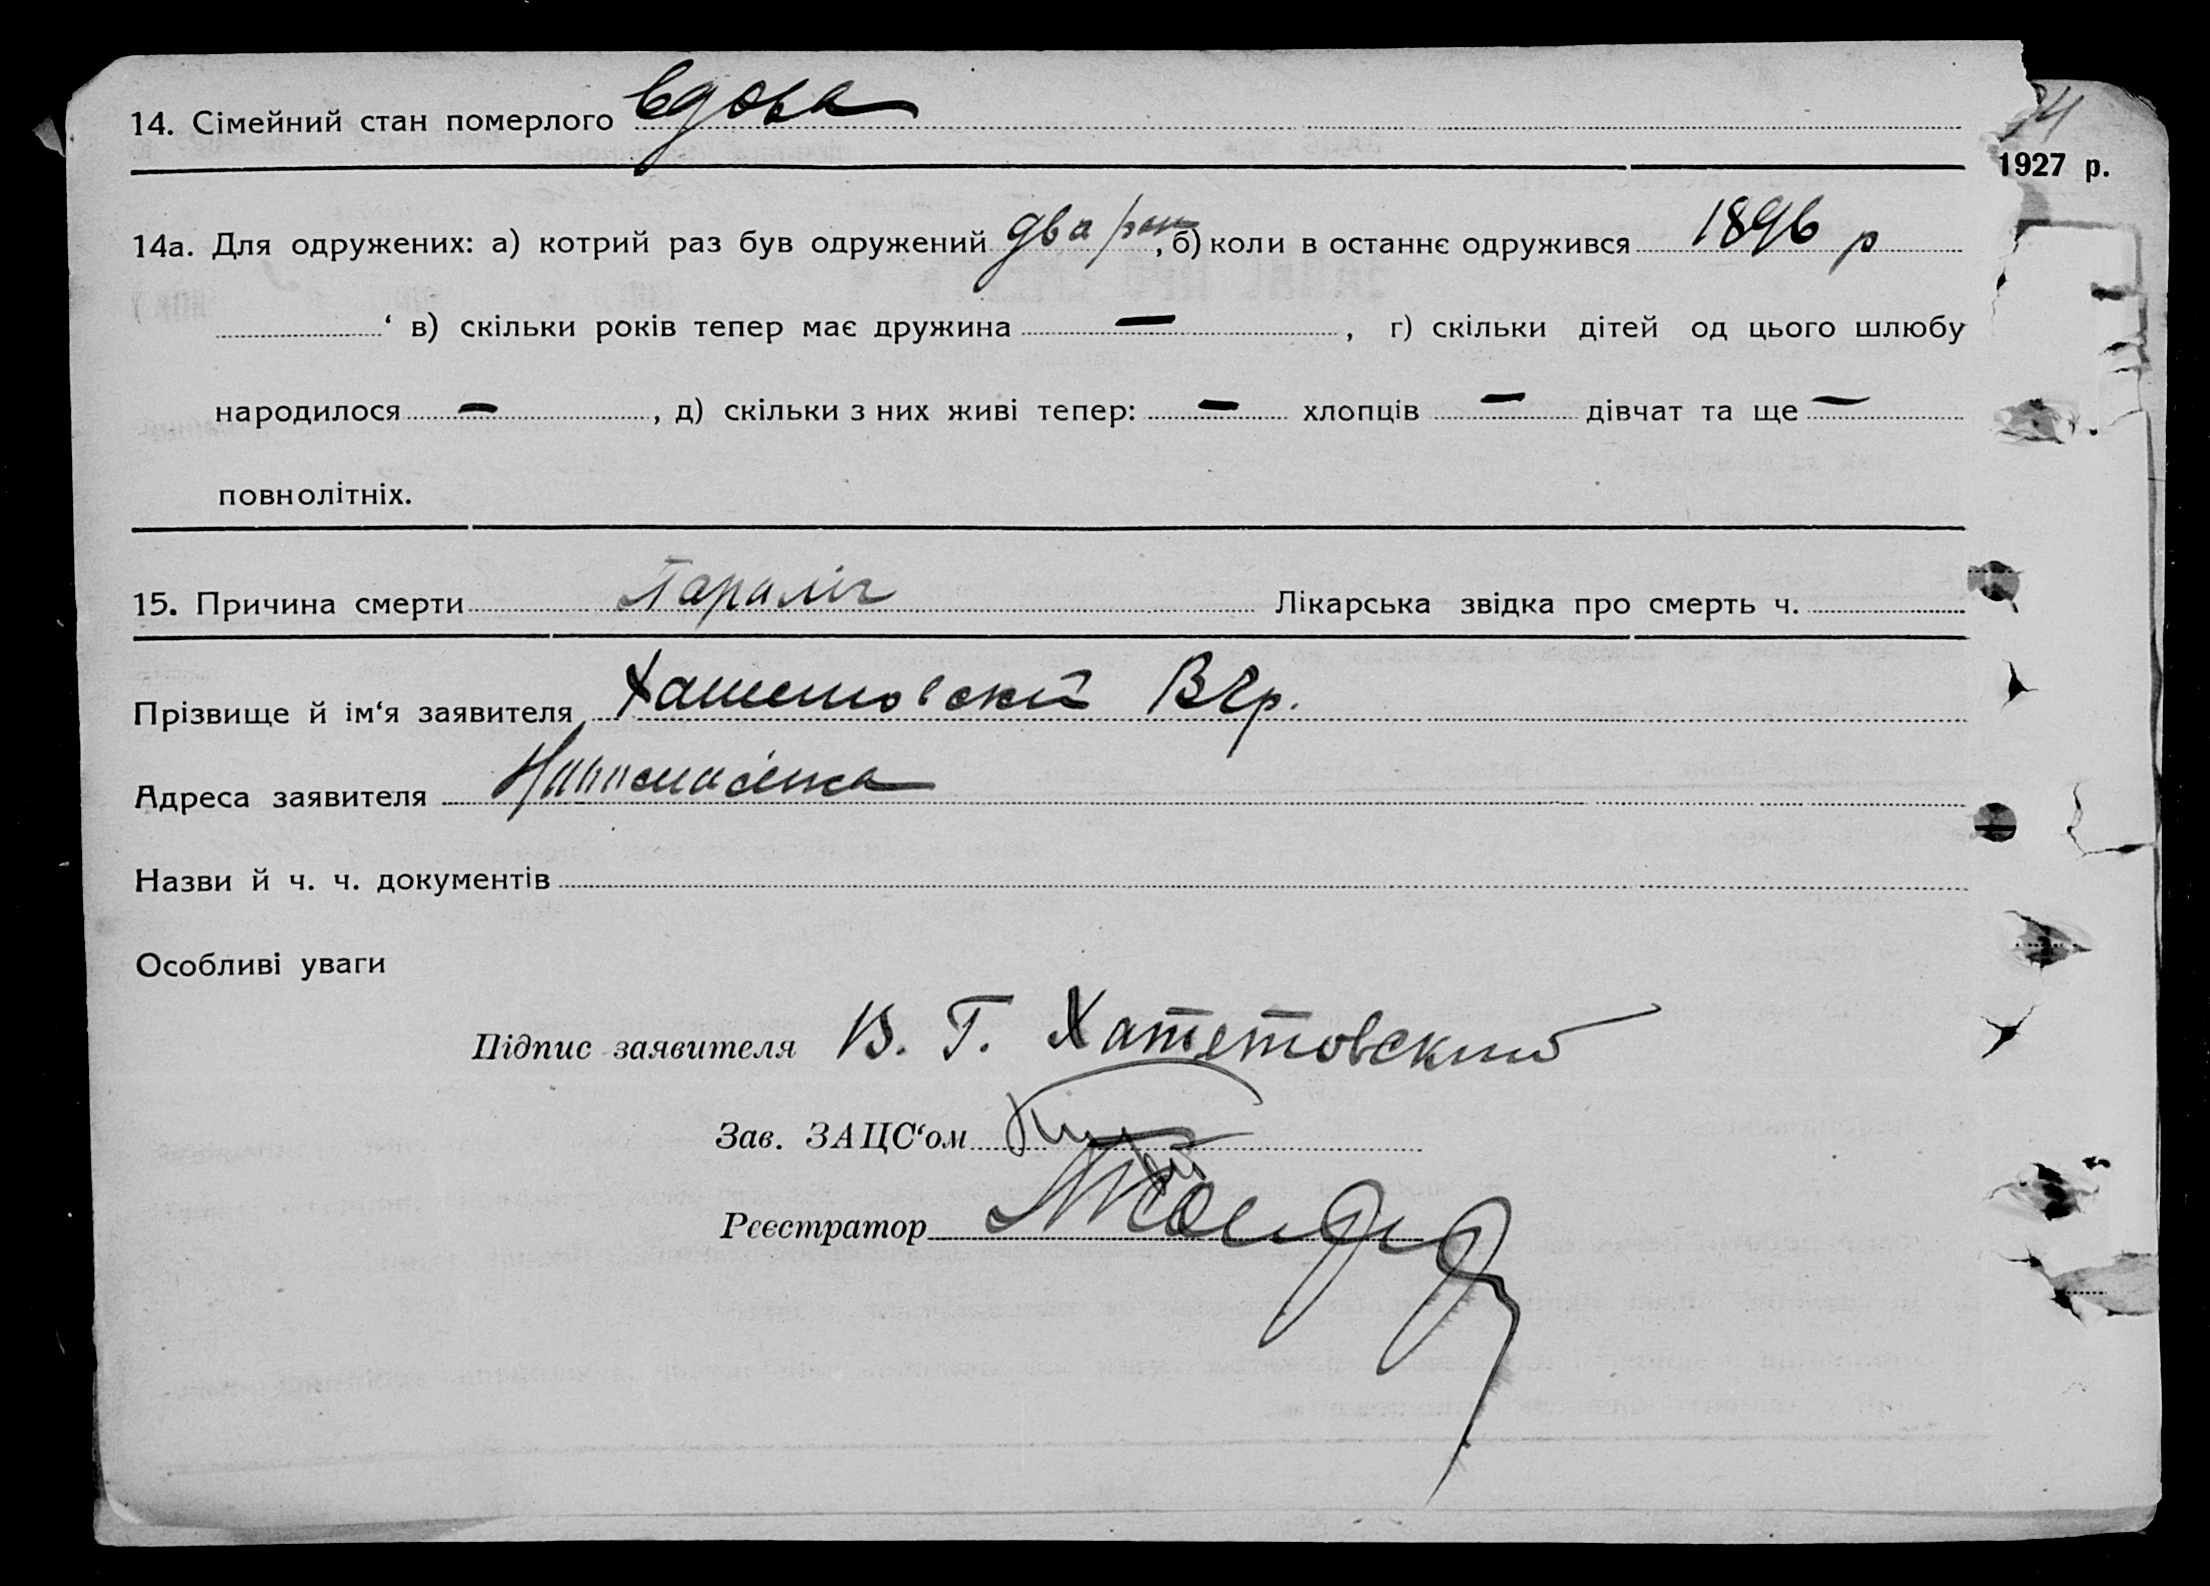 14. Сімейний стан померлого вдова
1927 р.
14а. Для одружених: а) котрий раз був одружений два рази, б) коли в останнє одружився 1896 р
‘ в) скільки років тепер має дружина —, г) скільки дітей од цього шлюбу
народилося —, д) скільки з них живі тепер: — хлопців — дівчат та ще —
повнолітніх.
15. Причина смерти Параліч Лікарська звідка про смерть ч.
Прізвище й ім‘я заявителя Хатетовский В Гр.
Адреса заявителя
Назви й ч. ч. документів
Особливі уваги
Підпис заявителя В. Г. Хатетовский
Зав. ЗАЦС‘ом
Реєстратор